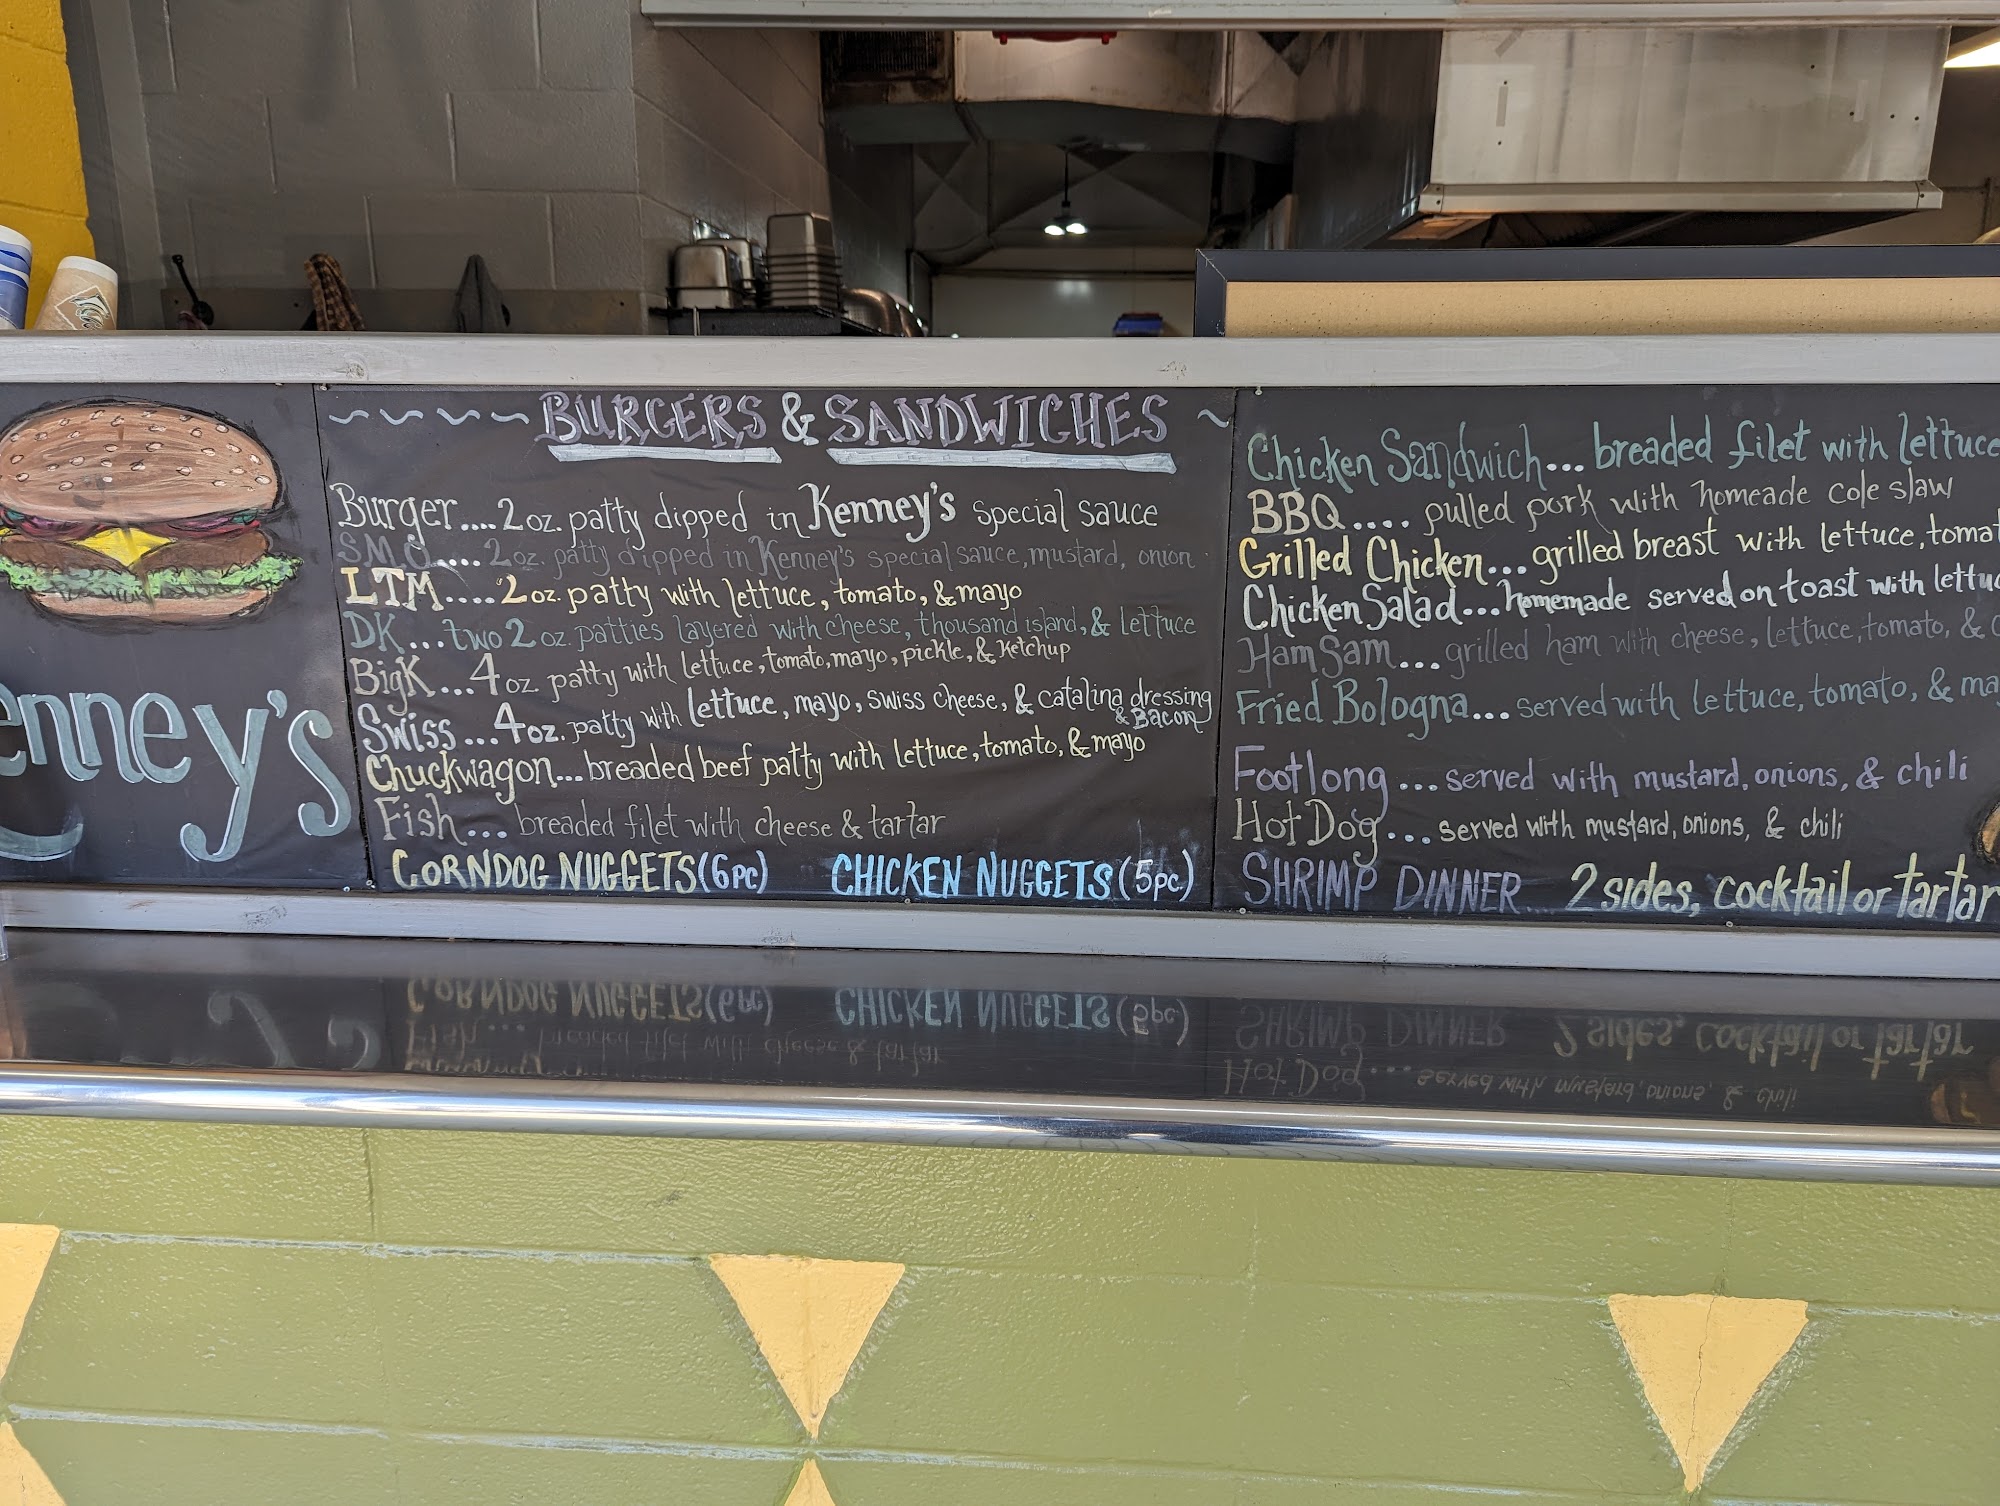 enney's
BURGERS & SANDWICHES
Burger....2oz. patty dipped in Kenney's special sauce
SMO....2oz. patty dipped in Kenney's special sauce, mustard, onion
LTM....2oz. patty with lettuce, tomato, & mayo
DK...two 2oz. patties layered with cheese, thousand island, & lettuce
BigK...4oz. patty with lettuce, tomato, mayo, pickle, & Ketchup
Swiss...4oz. patty with lettuce, mayo, swiss cheese, & catalina dressing
& Bacon
Chuckwagon...breaded beef patty with lettuce, tomato, & mayo
Fish...breaded filet with cheese & tartar
CORNDOG NUGGETS (6pc) CHICKEN NUGGETS (5pc.)
Chicken Sandwich...breaded filet with lettuce
BBQ....pulled pork with homeade cole slaw
Grilled Chicken...grilled breast with lettuce, tomat
Chicken Salad...homemade served on toast with lettuc
Ham Sam...grilled ham with cheese, lettuce, tomato, &
Fried Bologna...served with lettuce, tomato, & ma
Footlong...served with mustard, onions, & chili
Hot Dog...served with mustard, onions, & chili
SHRIMP DINNER.... 2 sides, cocktail or tartar